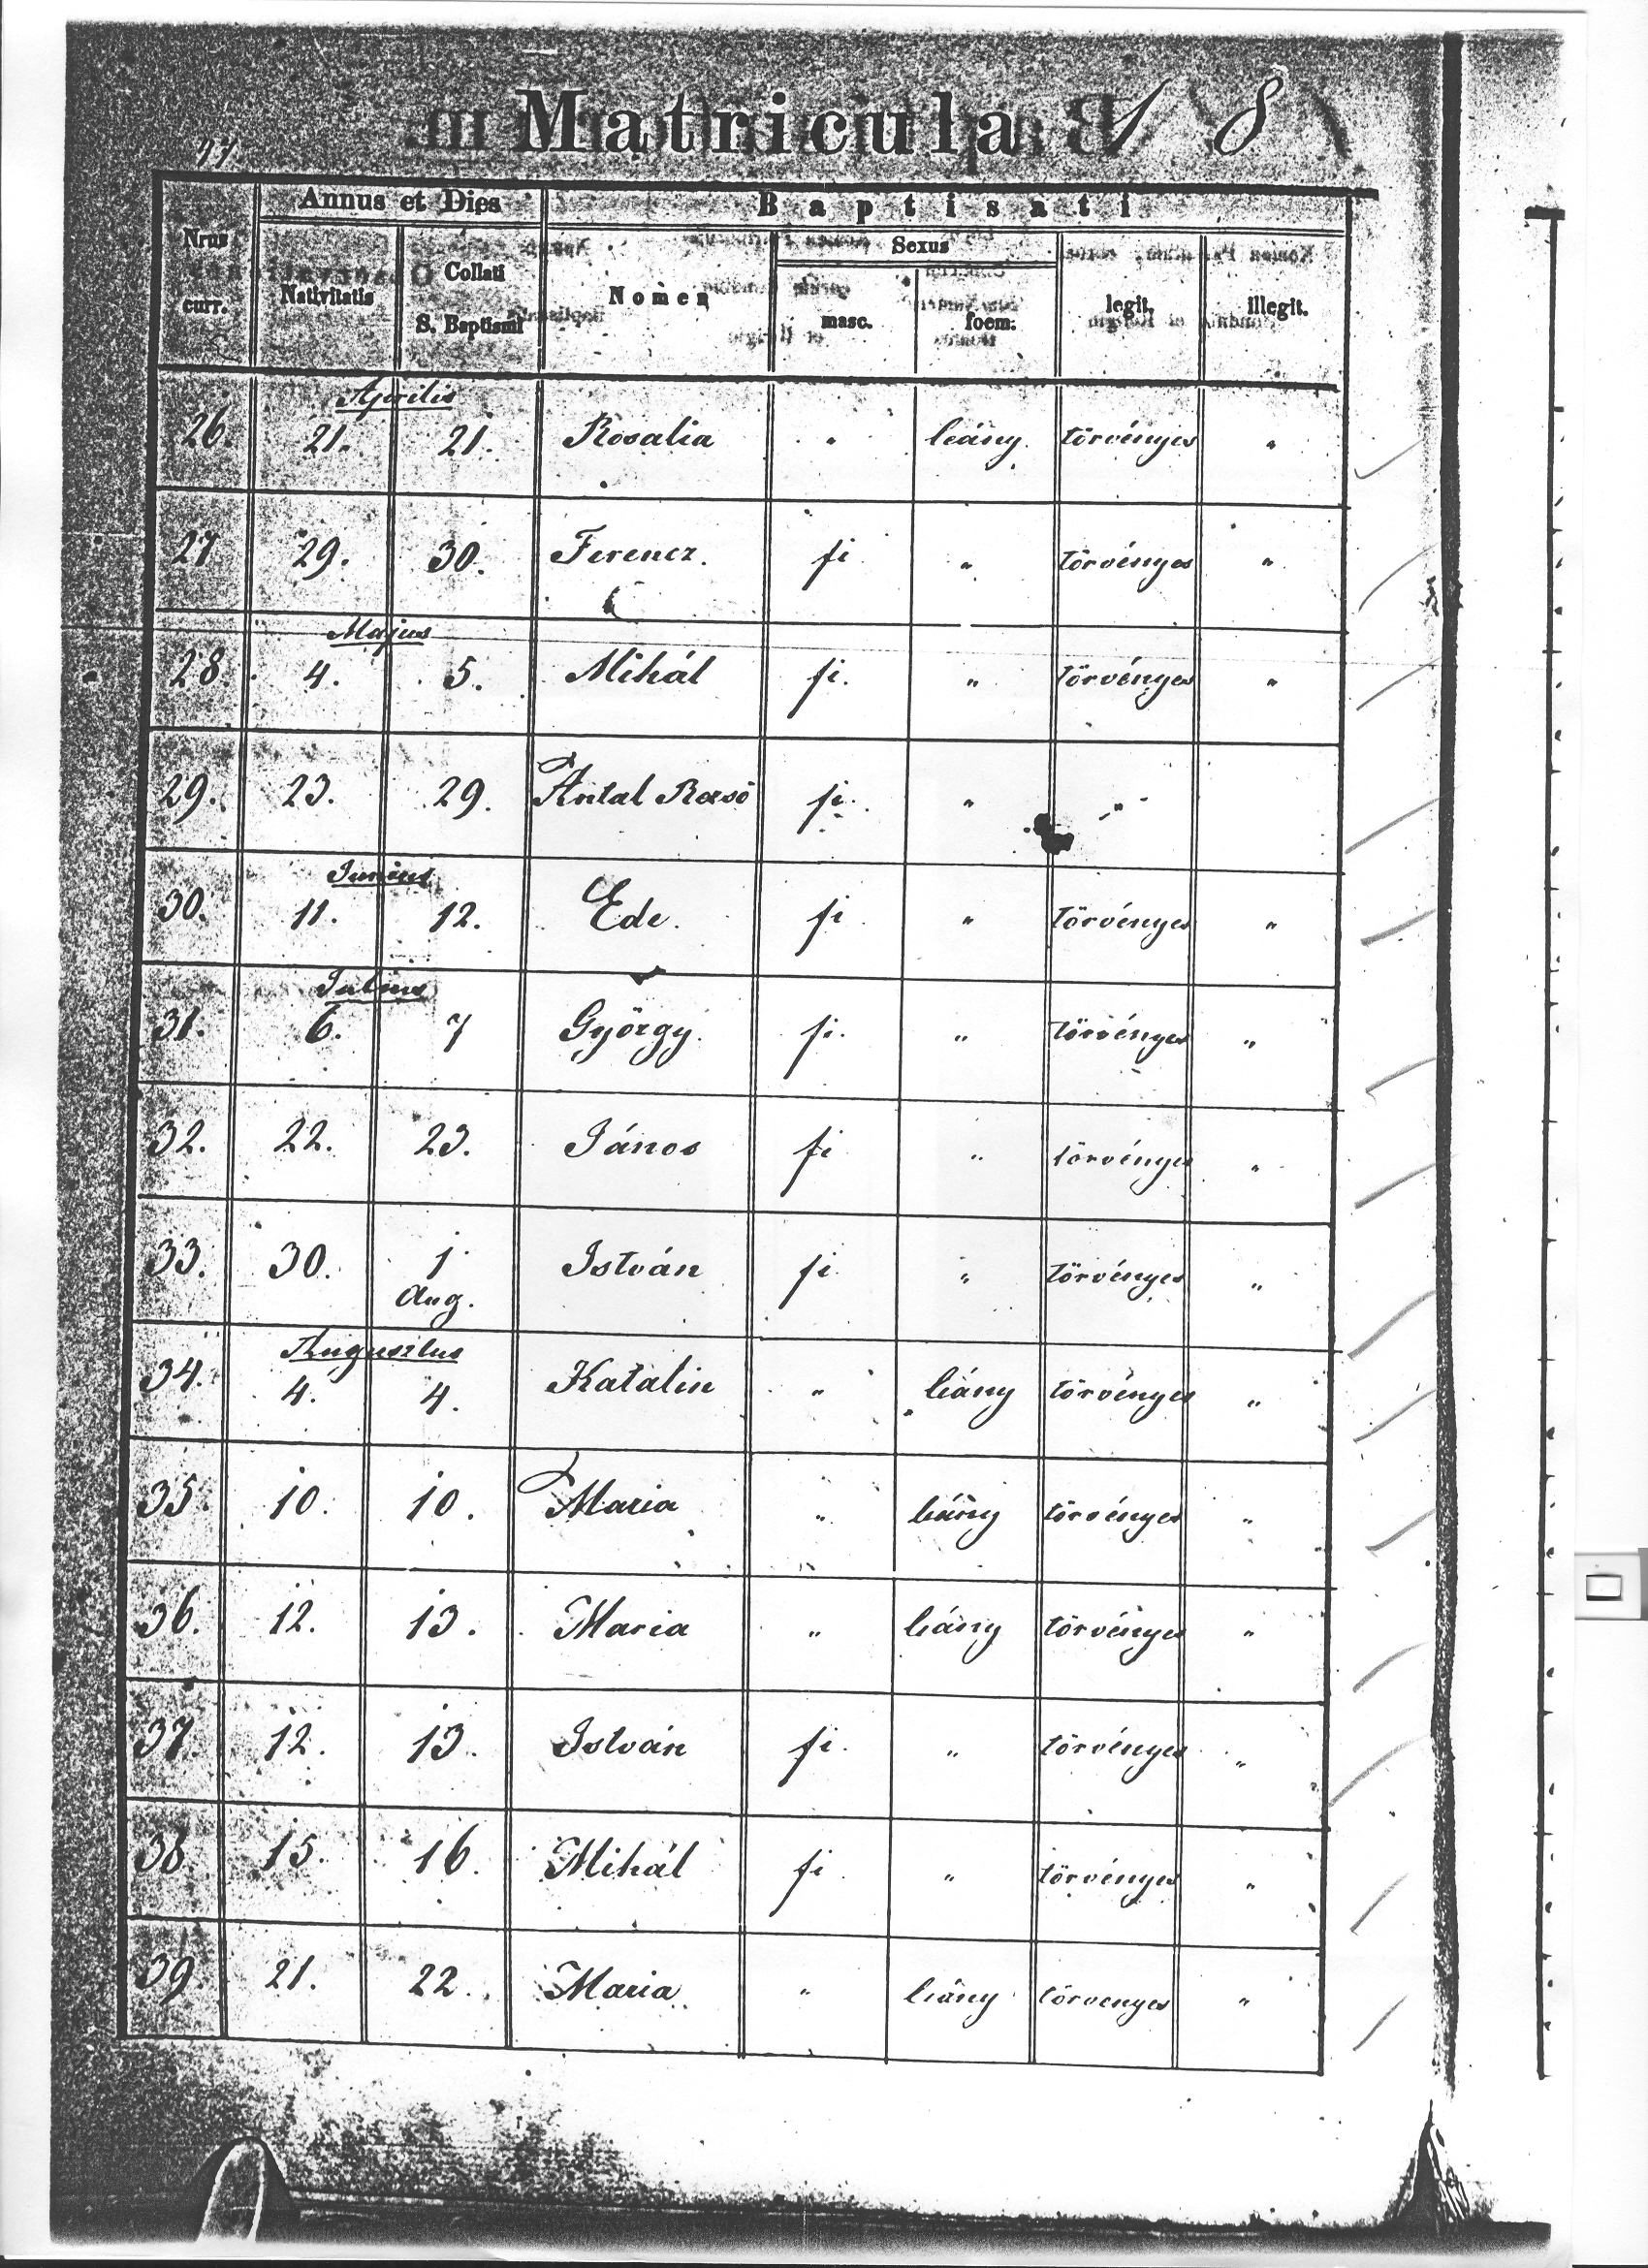 Matricula 18
97.
Annus et Dies Baptisati
Nrus curr. Nativitatis Collati S. Baptismi Nomen Sexus masc. foem. legit. illegit.
Aprilis
26. 21. 21. Rosalia " leány. törvényes "
27 29. 30. Ferencz. fi " törvényes "
Majus
28. 4. 5. Mihál fi. " törvényes "
29. 23. 29. Antal fi. " "
Junius
30. 11. 12. Ede. fi " törvényes "
Julius
31. 6. 7 György. fi. " törvényes "
32. 22. 23. János fi " törvényes "
33. 30. 1 István fi " törvényes "
Aug.
Augusztus
34. 4. 4. Katalin " leány törvényes "
35. 10. 10. Maria " leány törvényes "
36. 12. 13. Maria " leány törvényes "
37. 12. 13. István fi. " törvényes "
38. 15. 16. Mihál fi " törvényes "
39. 21. 22. Maria " leány törvenyes "